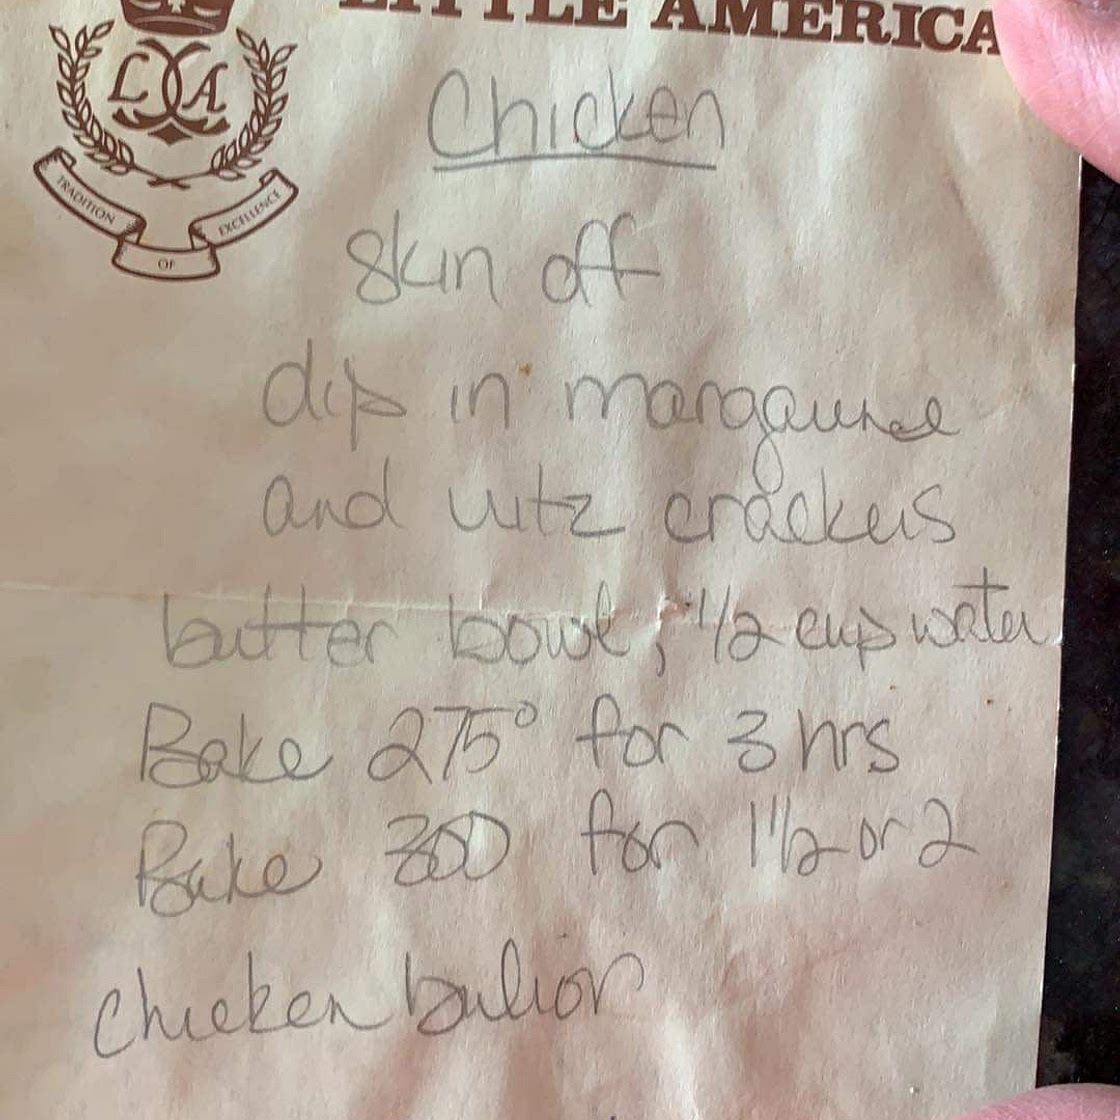 LITTLE AMERICA
LA
TRADITION OF EXCELLENCE
Chicken
Skin off
dip in margaurne
and ritz crackers
butter bowl; 1/2 cup water
Bake 275° for 3 hrs
Bake 300 for 1 1/2 or 2
chicken bulion